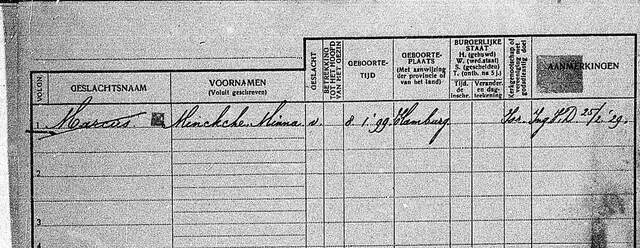 VOLGN.
GESLACHTSNAAM
VOORNAMEN
(Voluit geschreven)
GESLACHT
BETREKKING
TOT HET HOOFD
VAN HET GEZIN
GEBOORTE-
TIJD
GEBOORTE-
PLAATS
(Met aanwijzing
der provincie of
van het land)
BURGERLIJKE
STAAT
H. (gehuwd)
W. (wed.staat)
S. (gescheiden)
T. (ontb. na 5 j.)
Tijd.
de
inschr.
Verander.
en dag-
teekening
Kerkgenootschap of
vereeniging met
godsdienstig doel
AANMERKINGEN
1 Marcus Menckche Minna v. 8 1 '99 Hamburg Isr. Ing V.D. 25/2 '29.
2
3
4